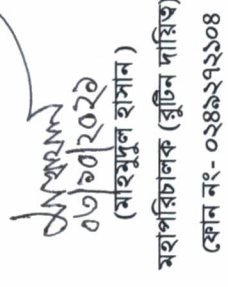 ০৬/১০/২০২১
(মাহমুদুল হাসান )
মহাপরিচালক (রুটিন দায়িত্ব)
ফোন নং- ০২৪৯২৭২১০৪